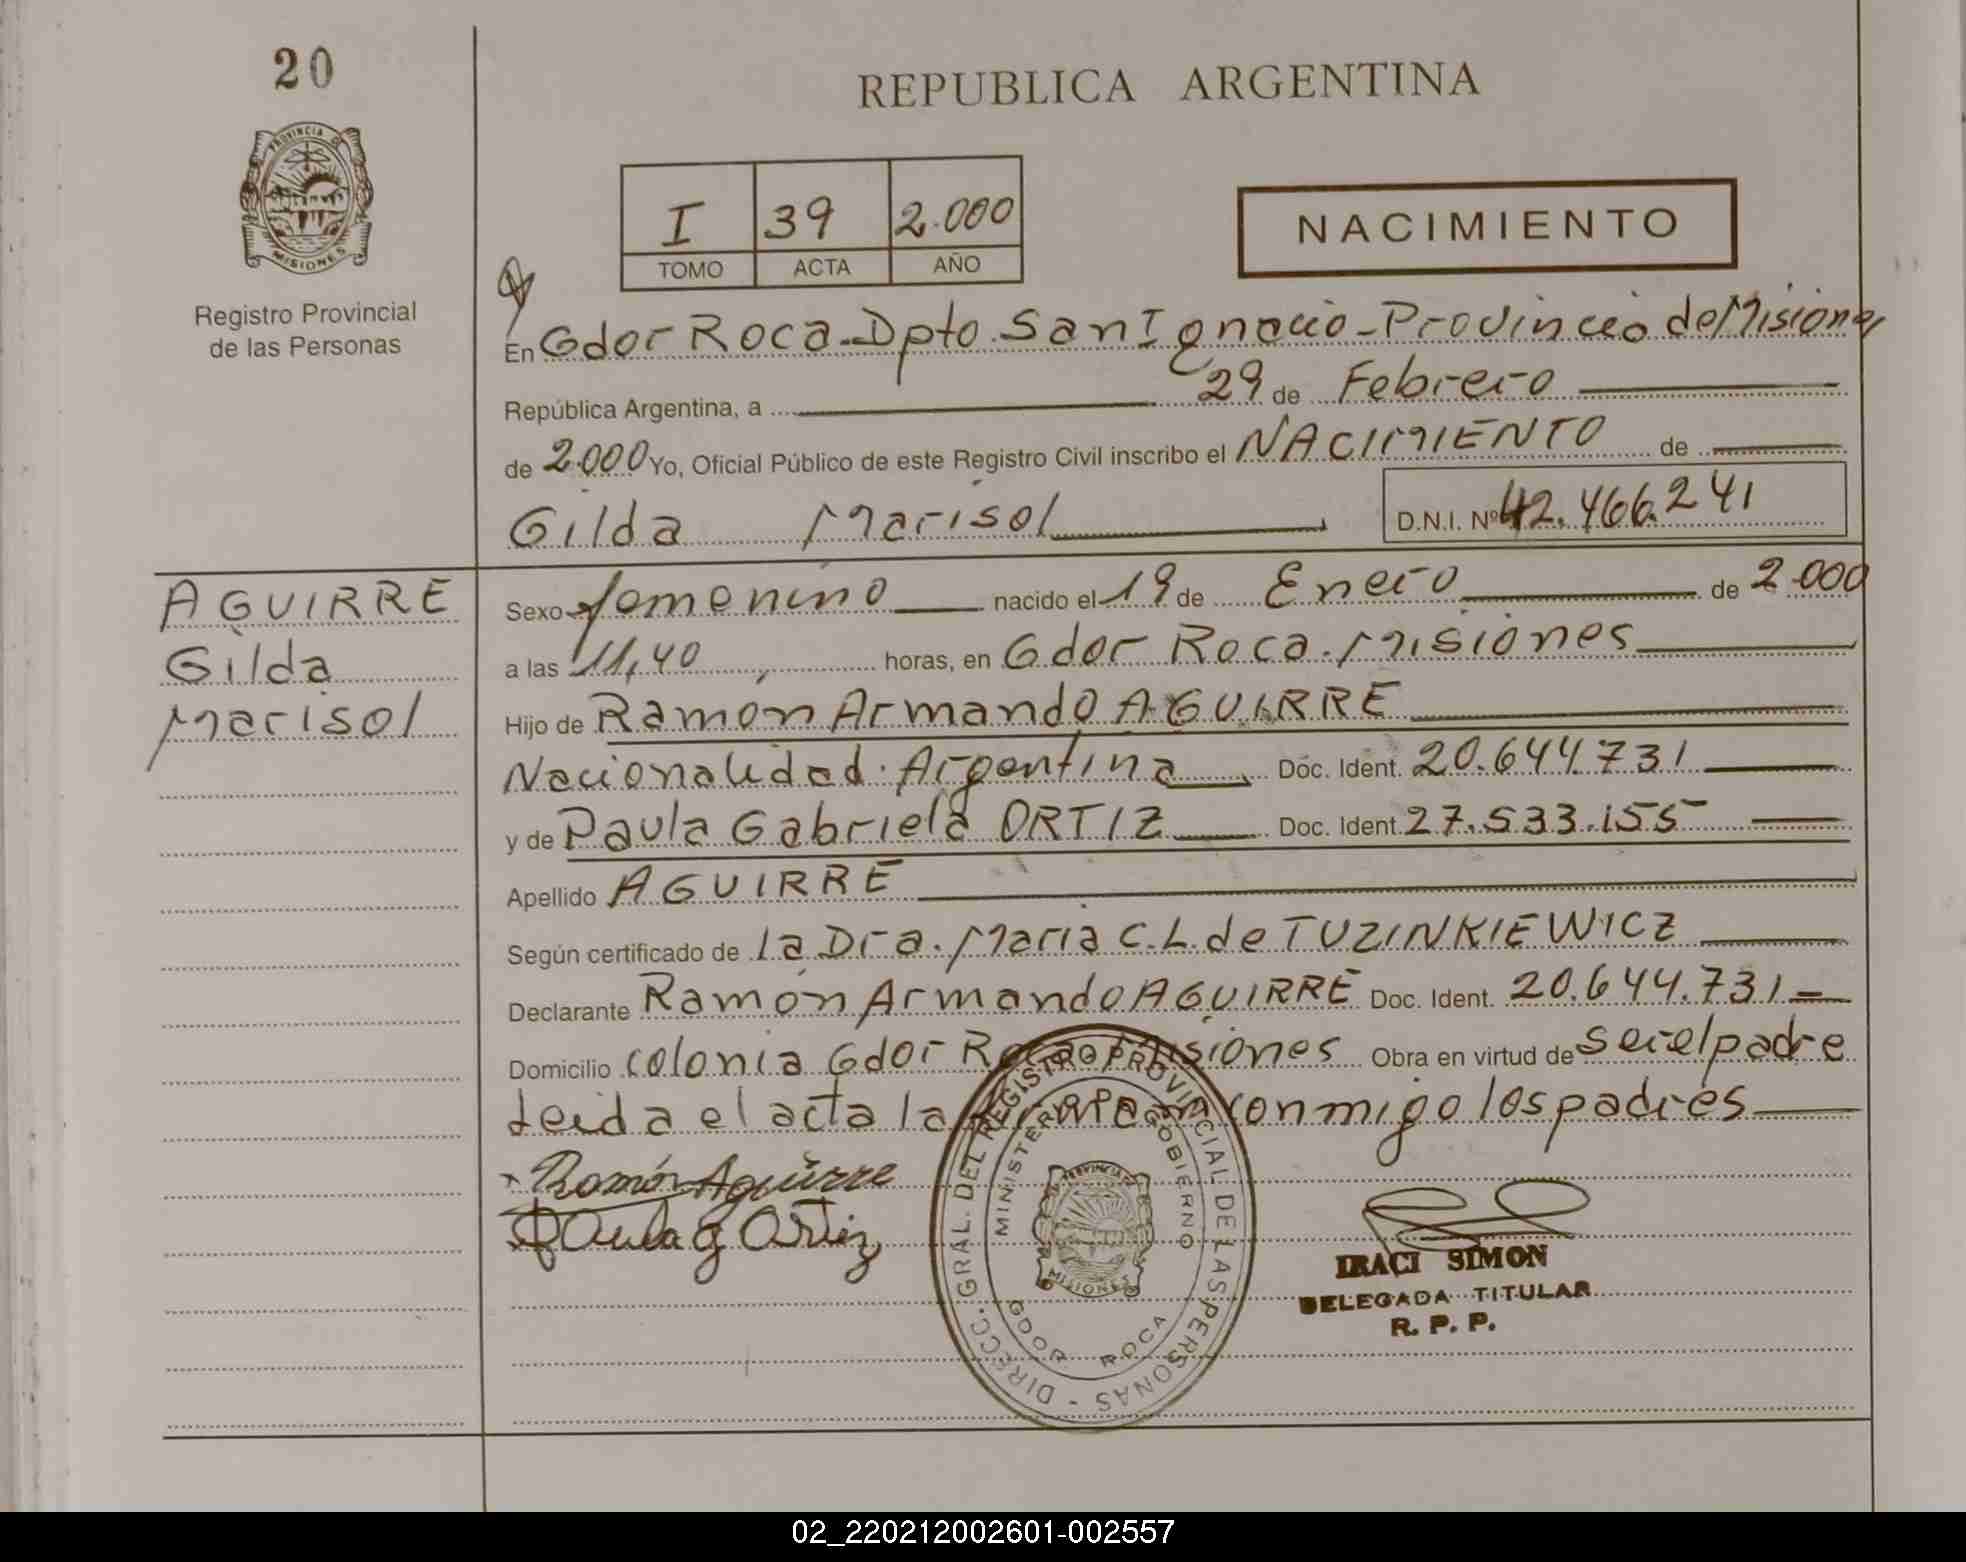 20
PROVINCIA DE
MISIONES
Registro Provincial
de las Personas
REPUBLICA ARGENTINA
I 39 2.000
TOMO ACTA AÑO
NACIMIENTO
En Gdor Roca-Dpto San Ignacio-Provincia de Misiones
República Argentina, a 29 de Febrero
de 2.000 Yo, Oficial Público de este Registro Civil inscribo el NACIMIENTO de
Gilda Marisol D.N.I. Nº 42.466.241
AGUIRRE
Gilda
Marisol
Sexo femenino nacido el 19 de Enero de 2.000
a las 11,40 horas, en Gdor Roca. Misiones
Hijo de Ramón Armando AGUIRRE
Nacionalidad. Argentina Doc. Ident. 20.644.731
y de Paula Gabriela ORTIZ Doc. Ident. 27.533.155
Apellido AGUIRRE
Según certificado de la Dra. Maria C.L. de TUZINKIEWICZ
Declarante Ramón Armando AGUIRRE Doc. Ident. 20.644.731
Domicilio colonia Gdor Roca Misiones Obra en virtud de ser el padre
Leida el acta la firman conmigo los padres
Ramón Aguirre
Paula G Ortiz
DIRECC. GRAL. DEL REGISTRO PROVINCIAL DE LAS PERSONAS -
MINISTERIO DE GOBIERNO
PROVINCIA DE
MISIONES
GDOR ROCA
IRACI SIMON
DELEGADA TITULAR
R. P. P.
02_220212002601-002557